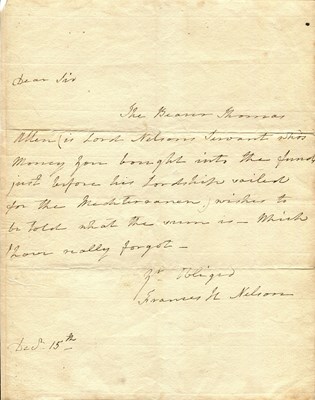 Dear Sir
The Bearer Thomas
Allen (is Lord Nelsons Servant who's
Money you bought into the funds
just before his Lordship sailed
for the Mediterranean, wishes to
be told what the sum is - Which
I have really forgot -
Yr Obliged
Frances H Nelson
Decr 15th